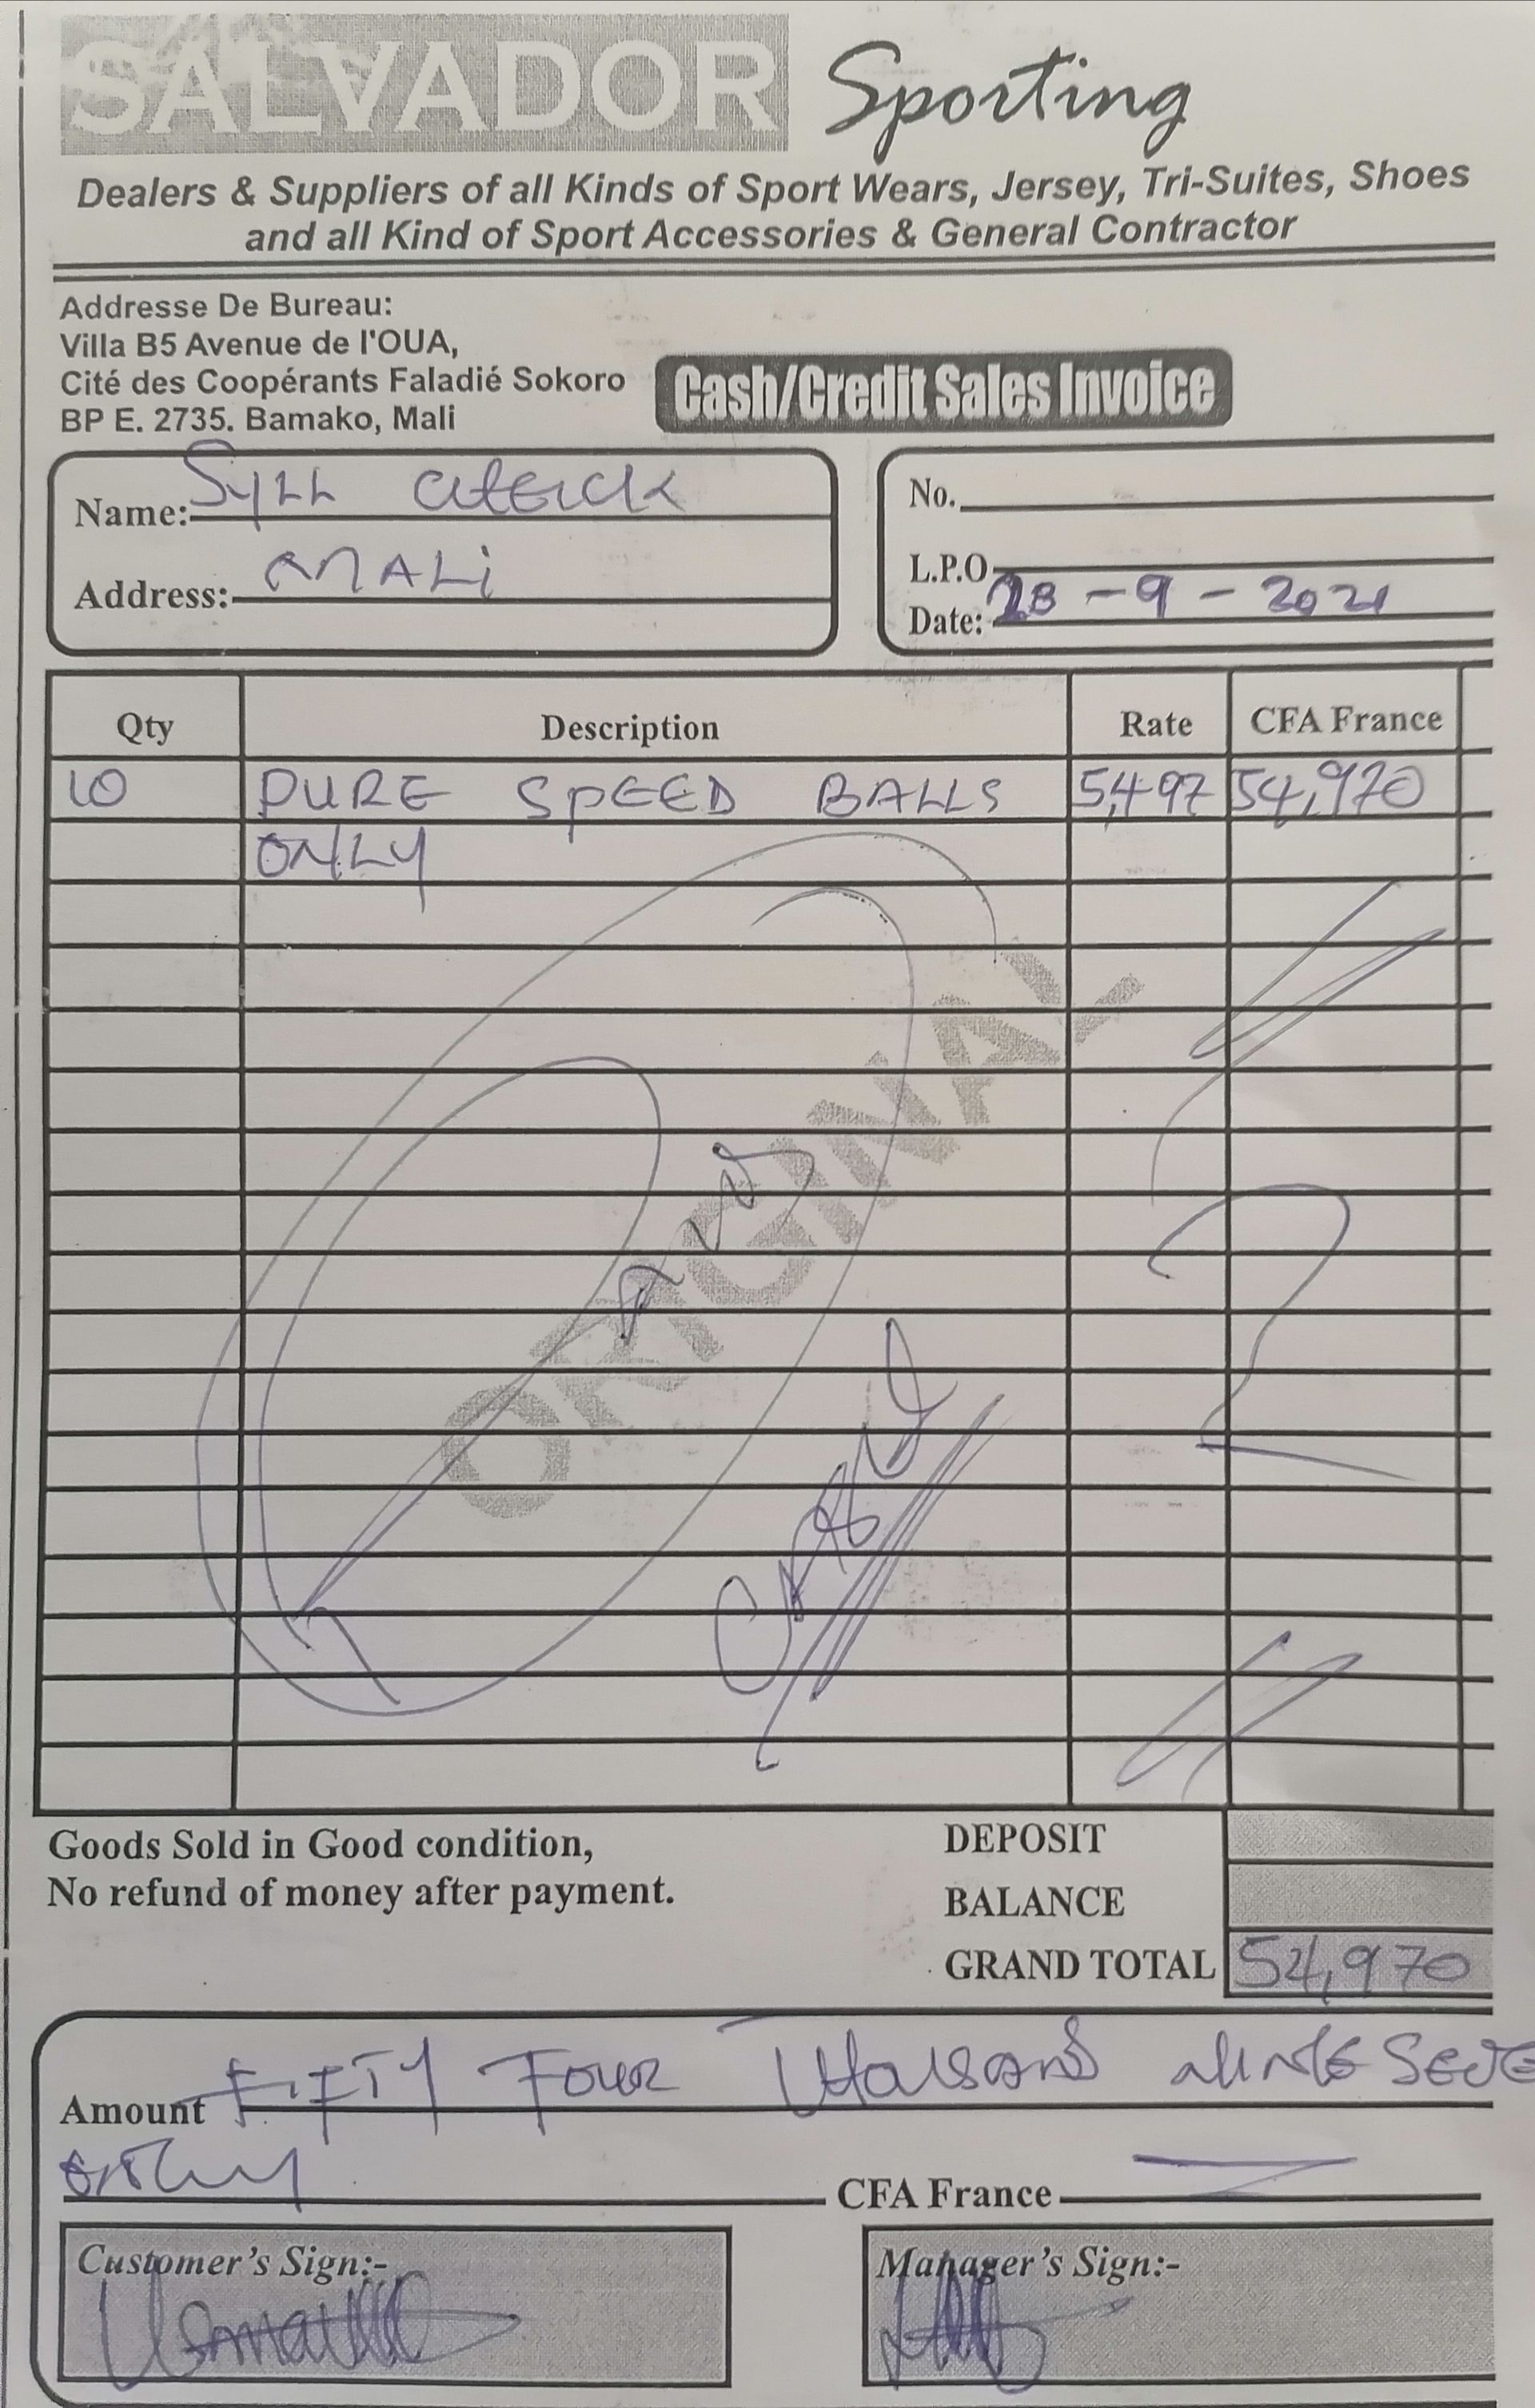 SALVADOR Sporting
Dealers & Suppliers of all Kinds of Sport Wears, Jersey, Tri-Suites, Shoes
and all Kind of Sport Accessories & General Contractor
Addresse De Bureau:
Villa B5 Avenue de l'OUA,
Cité des Coopérants Faladié Sokoro
BP E. 2735. Bamako, Mali
Cash/Credit Sales Invoice
Name: SYLL
Address: MALi
No.
L.P.O
Date: 28-9-2021
Qty Description Rate CFA France
10 PURE SPEED BALLS 5,497 54,970
ONLY
ORIGINAL
Goods Sold in Good condition,
No refund of money after payment.
DEPOSIT
BALANCE
GRAND TOTAL 54,970
Amount FIFTY FOUR THOUSAND NINE SEVE
CFA France
Customer's Sign:-
Manager's Sign:-